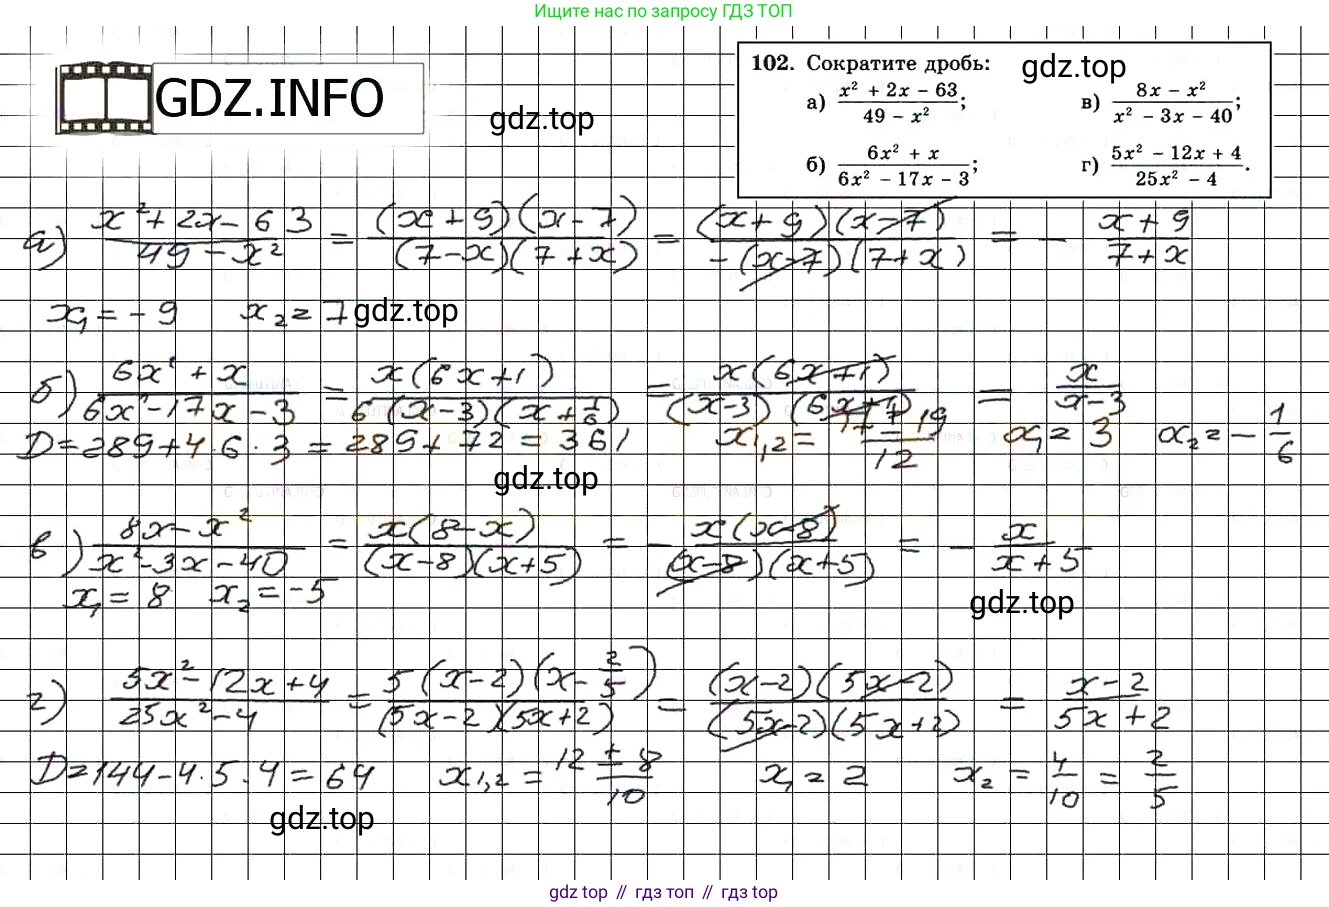 Ищите нас по запросу ГДЗ ТОП
GDZ.INFO
gdz.top
102. Сократите дробь: gdz.top
а) (x² + 2x − 63)/(49 − x²); в) (8x − x²)/(x² − 3x − 40);
б) (6x² + x)/(6x² − 17x − 3); г) (5x² − 12x + 4)/(25x² − 4).
а) (x² + 2x − 63)/(49 − x²) = ((x + 9)(x − 7))/((7 − x)(7 + x)) = ((x + 9)(x − 7))/(−(x − 7)(7 + x)) = − (x + 9)/(7 + x)
x₁ = − 9 x₂ = 7 gdz.top
б) (6x² + x)/(6x² − 17x − 3) = (x(6x + 1))/(6(x − 3)(x + 1/6)) = (x(6x + 1))/((x − 3)(6x + 1)) = x/(x − 3)
D = 289 + 4 · 6 · 3 = 289 + 72 = 361 x₁,₂ = (17 ± 19)/12 x₁ = 3 x₂ = − 1/6
gdz.top
в) (8x − x²)/(x² − 3x − 40) = (x(8 − x))/((x − 8)(x + 5)) = − (x(x − 8))/((x − 8)(x + 5)) = − x/(x + 5)
x₁ = 8 x₂ = −5 gdz.top
г) (5x² − 12x + 4)/(25x² − 4) = (5(x − 2)(x − 2/5))/((5x − 2)(5x + 2)) = ((x − 2)(5x − 2))/((5x − 2)(5x + 2)) = (x − 2)/(5x + 2)
D = 144 − 4 · 5 · 4 = 64 x₁,₂ = (12 ± 8)/10 x₁ = 2 x₂ = 4/10 = 2/5
gdz.top
gdz top // гдз топ // гдз top